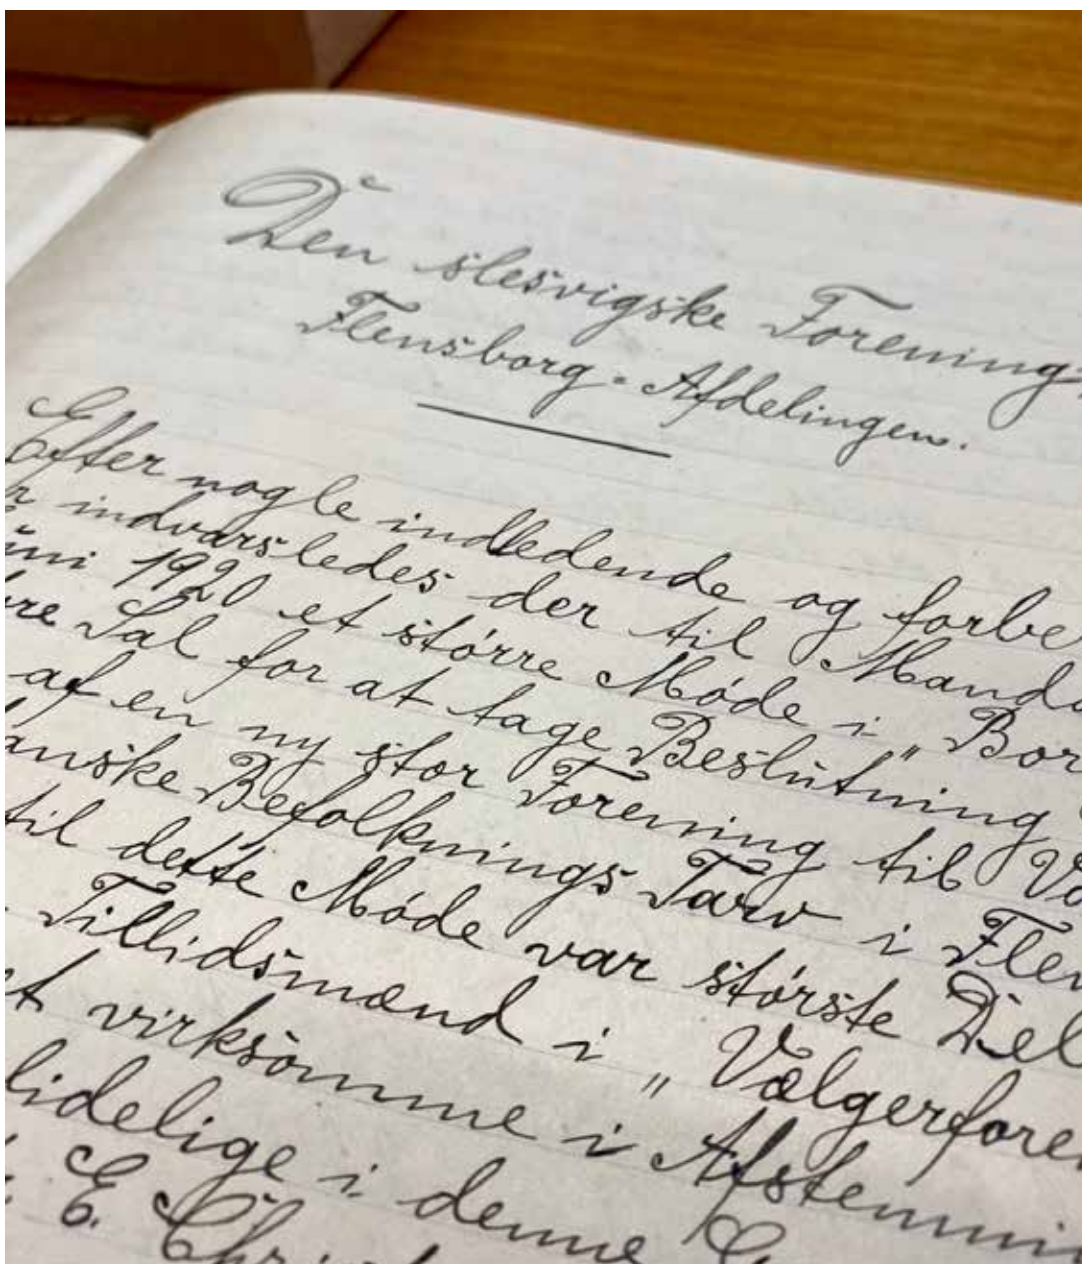 Den slesvigske Forening.
Flensborg-Afdelingen.
Efter nogle indledende og forbe
r indvarsledes der til Manda
uni 1920 et større Møde i „Bor
re Sal for at tage Beslutning
af en ny stor Forening til Va
anske Befolknings Tarv i Flen
til dette Møde var største Del
Tillidsmænd i „Vælgerfore
t virksomme i Afstemnin
lidelige i denne
E. Chri